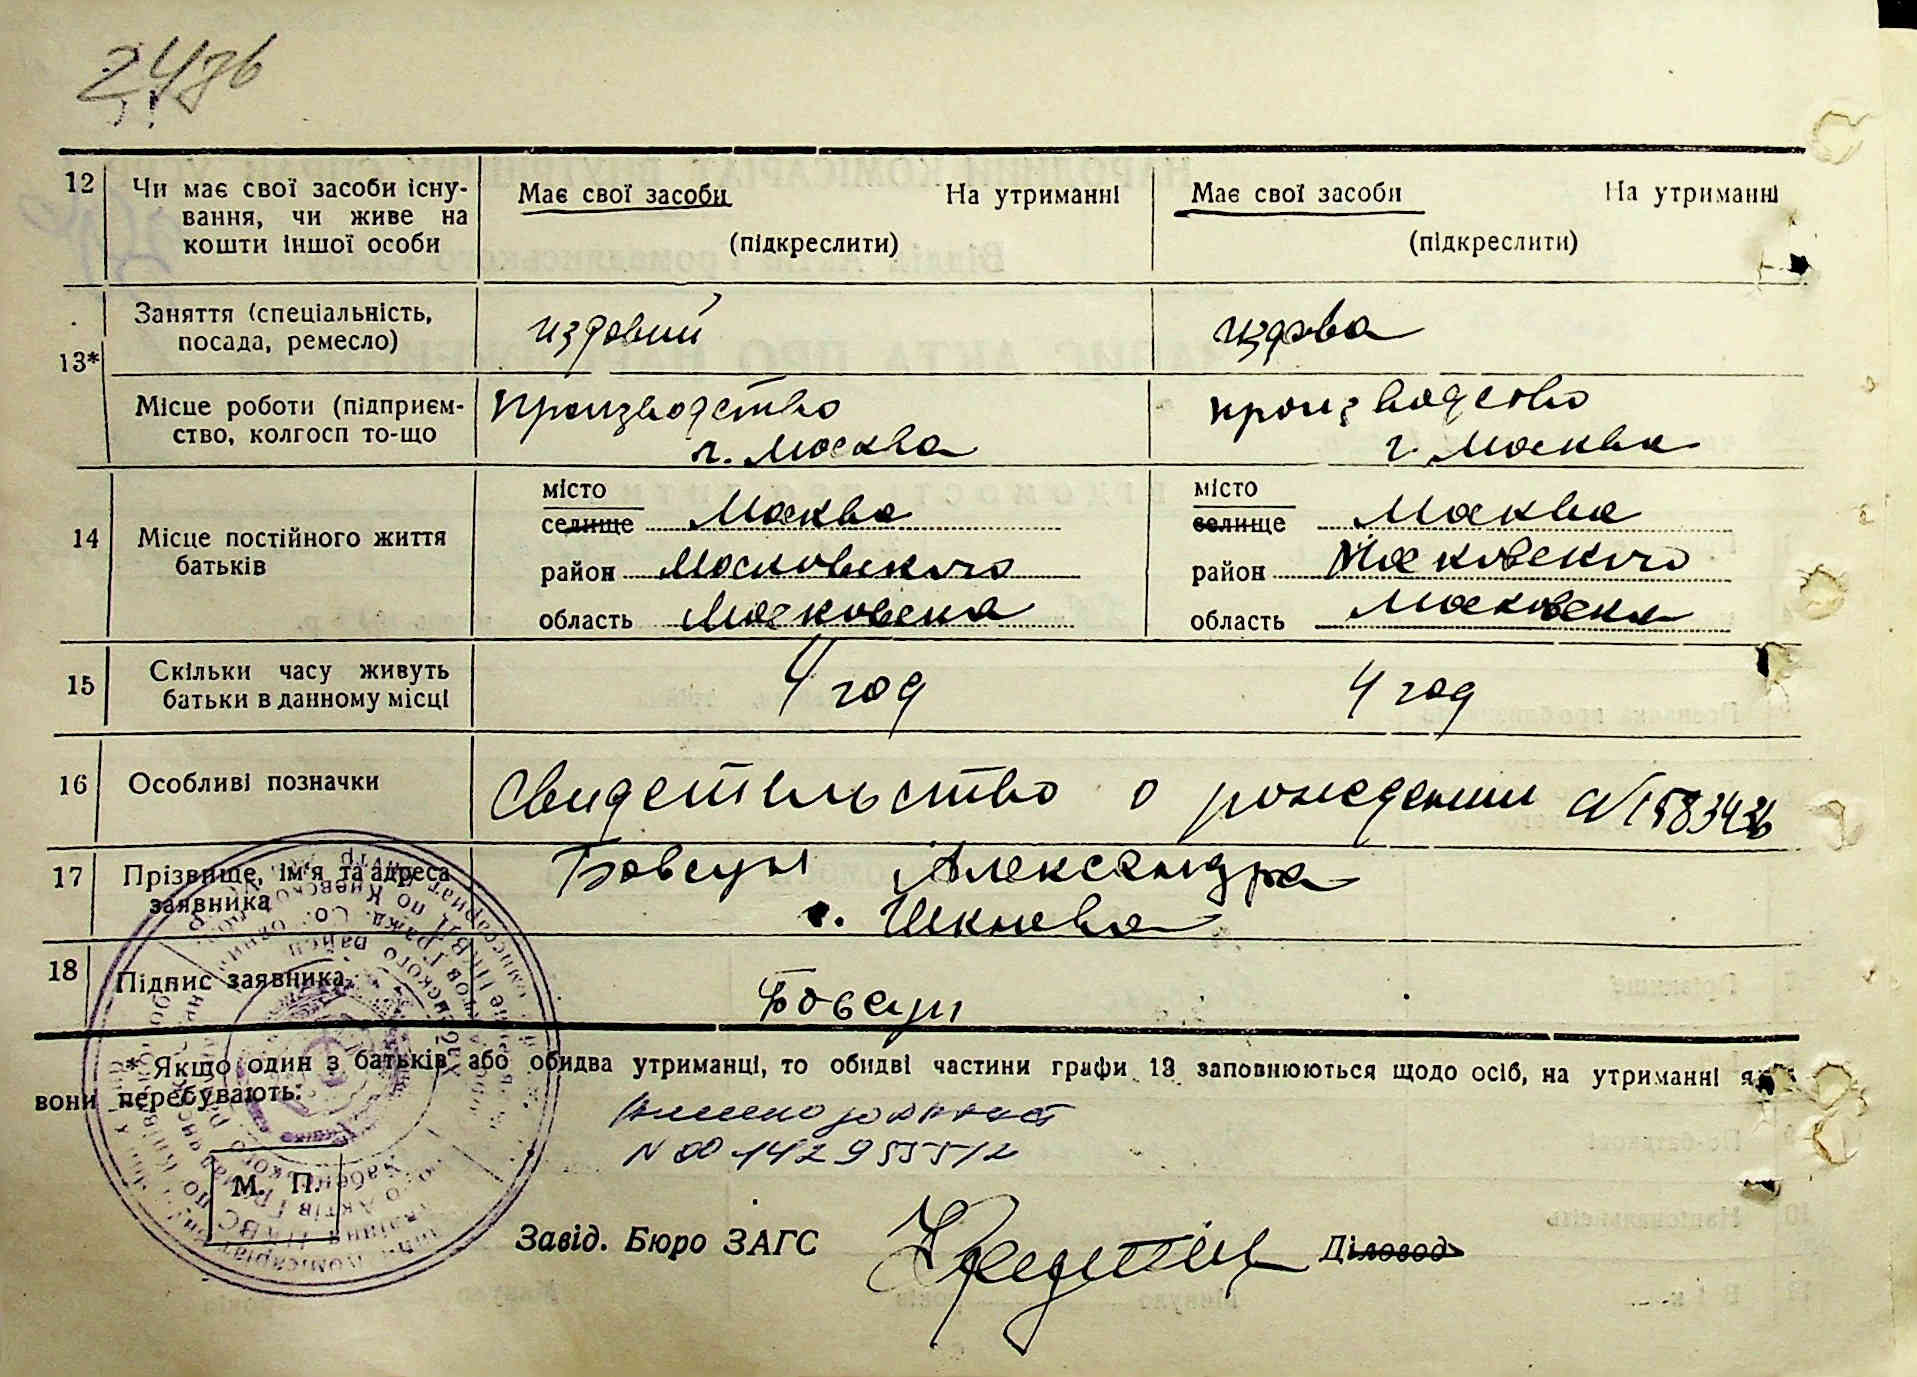 12
Чи має свої засоби існу-
вання, чи живе на
кошти іншої особи
Має свої засоби На утриманні
(підкреслити)
Має свої засоби На утриманні
(підкреслити)
13*
Заняття (спеціальність,
посада, ремесло)
Місце роботи (підприєм-
ство, колгосп то-що
производство
г. Москва
производство
г. Москва
14
Місце постійного життя
батьків
місто
селище Москва
район Московского
область Московска
місто
селище Москва
район Московского
область Московска
15
Скільки часу живуть
батьки в данному місці
4 год
4 год
16
Особливі позначки
Свидетельство о рождении
17
Прізвище, ім'я та адреса
заявника
Бовсун Александра
с.
18
Підпис заявника
Бовсун
* Якщо один з батьків або обидва утриманці, то обидві частини графи 13 заповнюються щодо осіб, на утриманні яких
вони перебувають.
М. П.
Завід. Бюро ЗАГС
Діловод